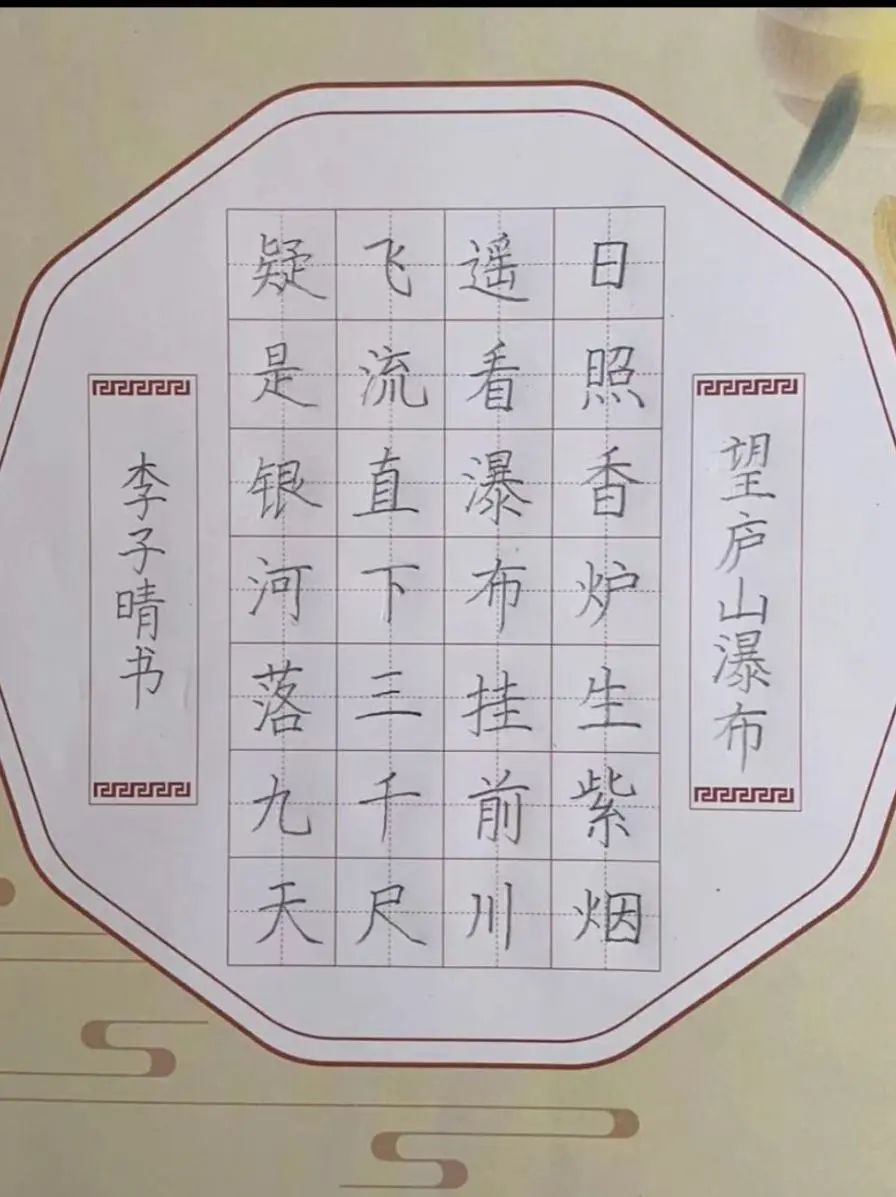 望庐山瀑布
日照香炉生紫烟
遥看瀑布挂前川
飞流直下三千尺
疑是银河落九天
李子晴书